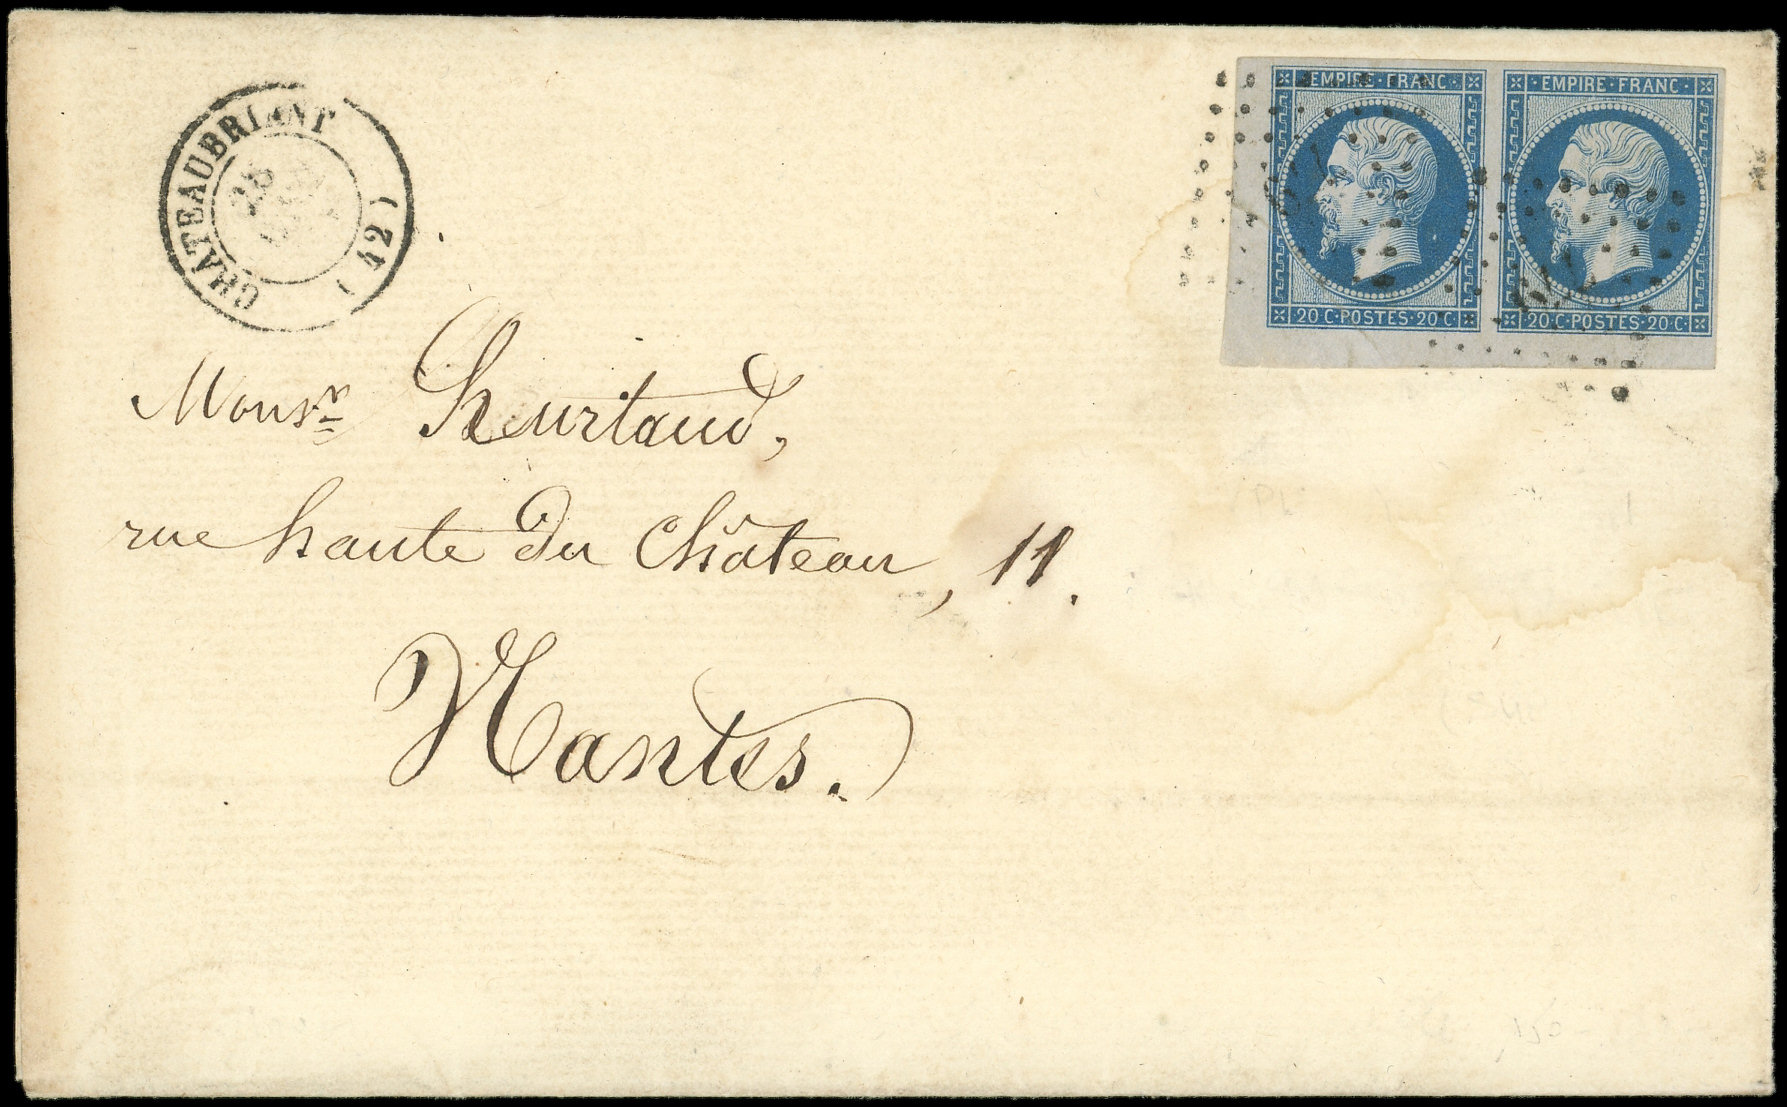 CHATEAUBRIANT
(42)
EMPIRE·FRANC·
20·C·POSTES·20·C
EMPIRE·FRANC·
20·C·POSTES·20·C
Monsr. Heurtaud,
rue haute du Château, 11.
Nantes.